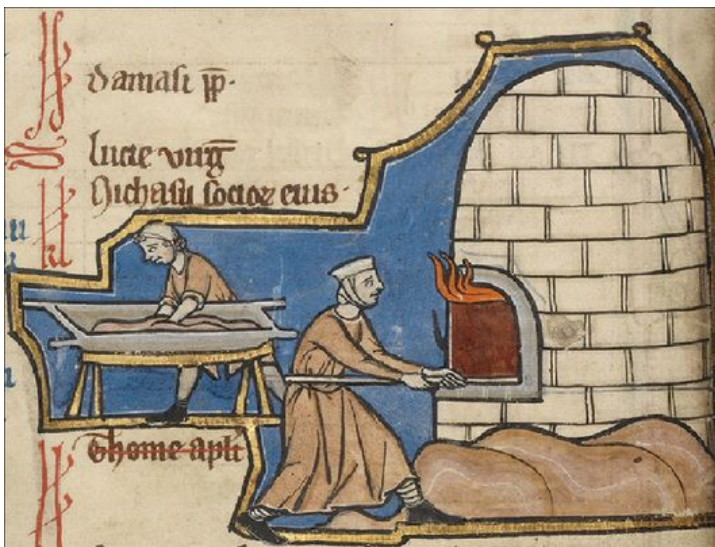 damasi pp̄.
lucie uirg̅
Nichasii socior eius.
Thome apli